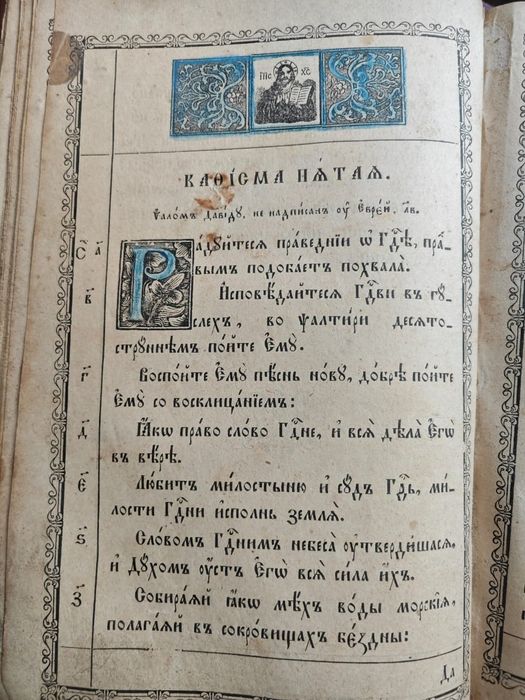 І҆И҃С Х҃С
КАѲІ́СМА ПѦ́ТАѦ.
Ѱало́мъ Даві́дꙋ, не надпи́санъ ᲂу҆ Є҆вре́й, л҃в.
С҃ а҃ Ра́дꙋйтесѧ пра́веднїи ѡ҆ Гд҇ѣ, пра́-
вымъ подоба́етъ похвала̀.
в҃ И҆сповѣ́дайтесѧ Гд҇ви въ гꙋ́-
слехъ, во ѱалти́ри десѧто-
стрꙋ́ннѣмъ по́йте Є҆мꙋ̀.
г҃ Воспо́йте Є҆мꙋ̀ пѣ́снь но́вꙋ, до́брѣ по́йте
Є҆мꙋ̀ со восклица́нїемъ:
д҃ Ꙗ҆́кѡ пра́во сло́во Гд҇не, и҆ всѧ̑ дѣла̀ Є҆гѡ̀
въ вѣ́рѣ.
є҃ Лю́битъ ми́лостыню и҆ сꙋ́дъ Гд҇ь, ми́-
лости Гд҇ни и҆спо́лнь землѧ̀.
ѕ҃ Сло́вомъ Гд҇нимъ небеса̀ ᲂу҆тверди́шасѧ,
и҆ Дꙋ́хомъ ᲂу҆́стъ Є҆гѡ̀ всѧ̀ си́ла и҆́хъ.
з҃ Собира́ѧй ꙗ҆́кѡ мѣ́хъ во́ды морскі́ѧ,
полага́ѧй въ сокро́вищахъ бє́здны:
Да